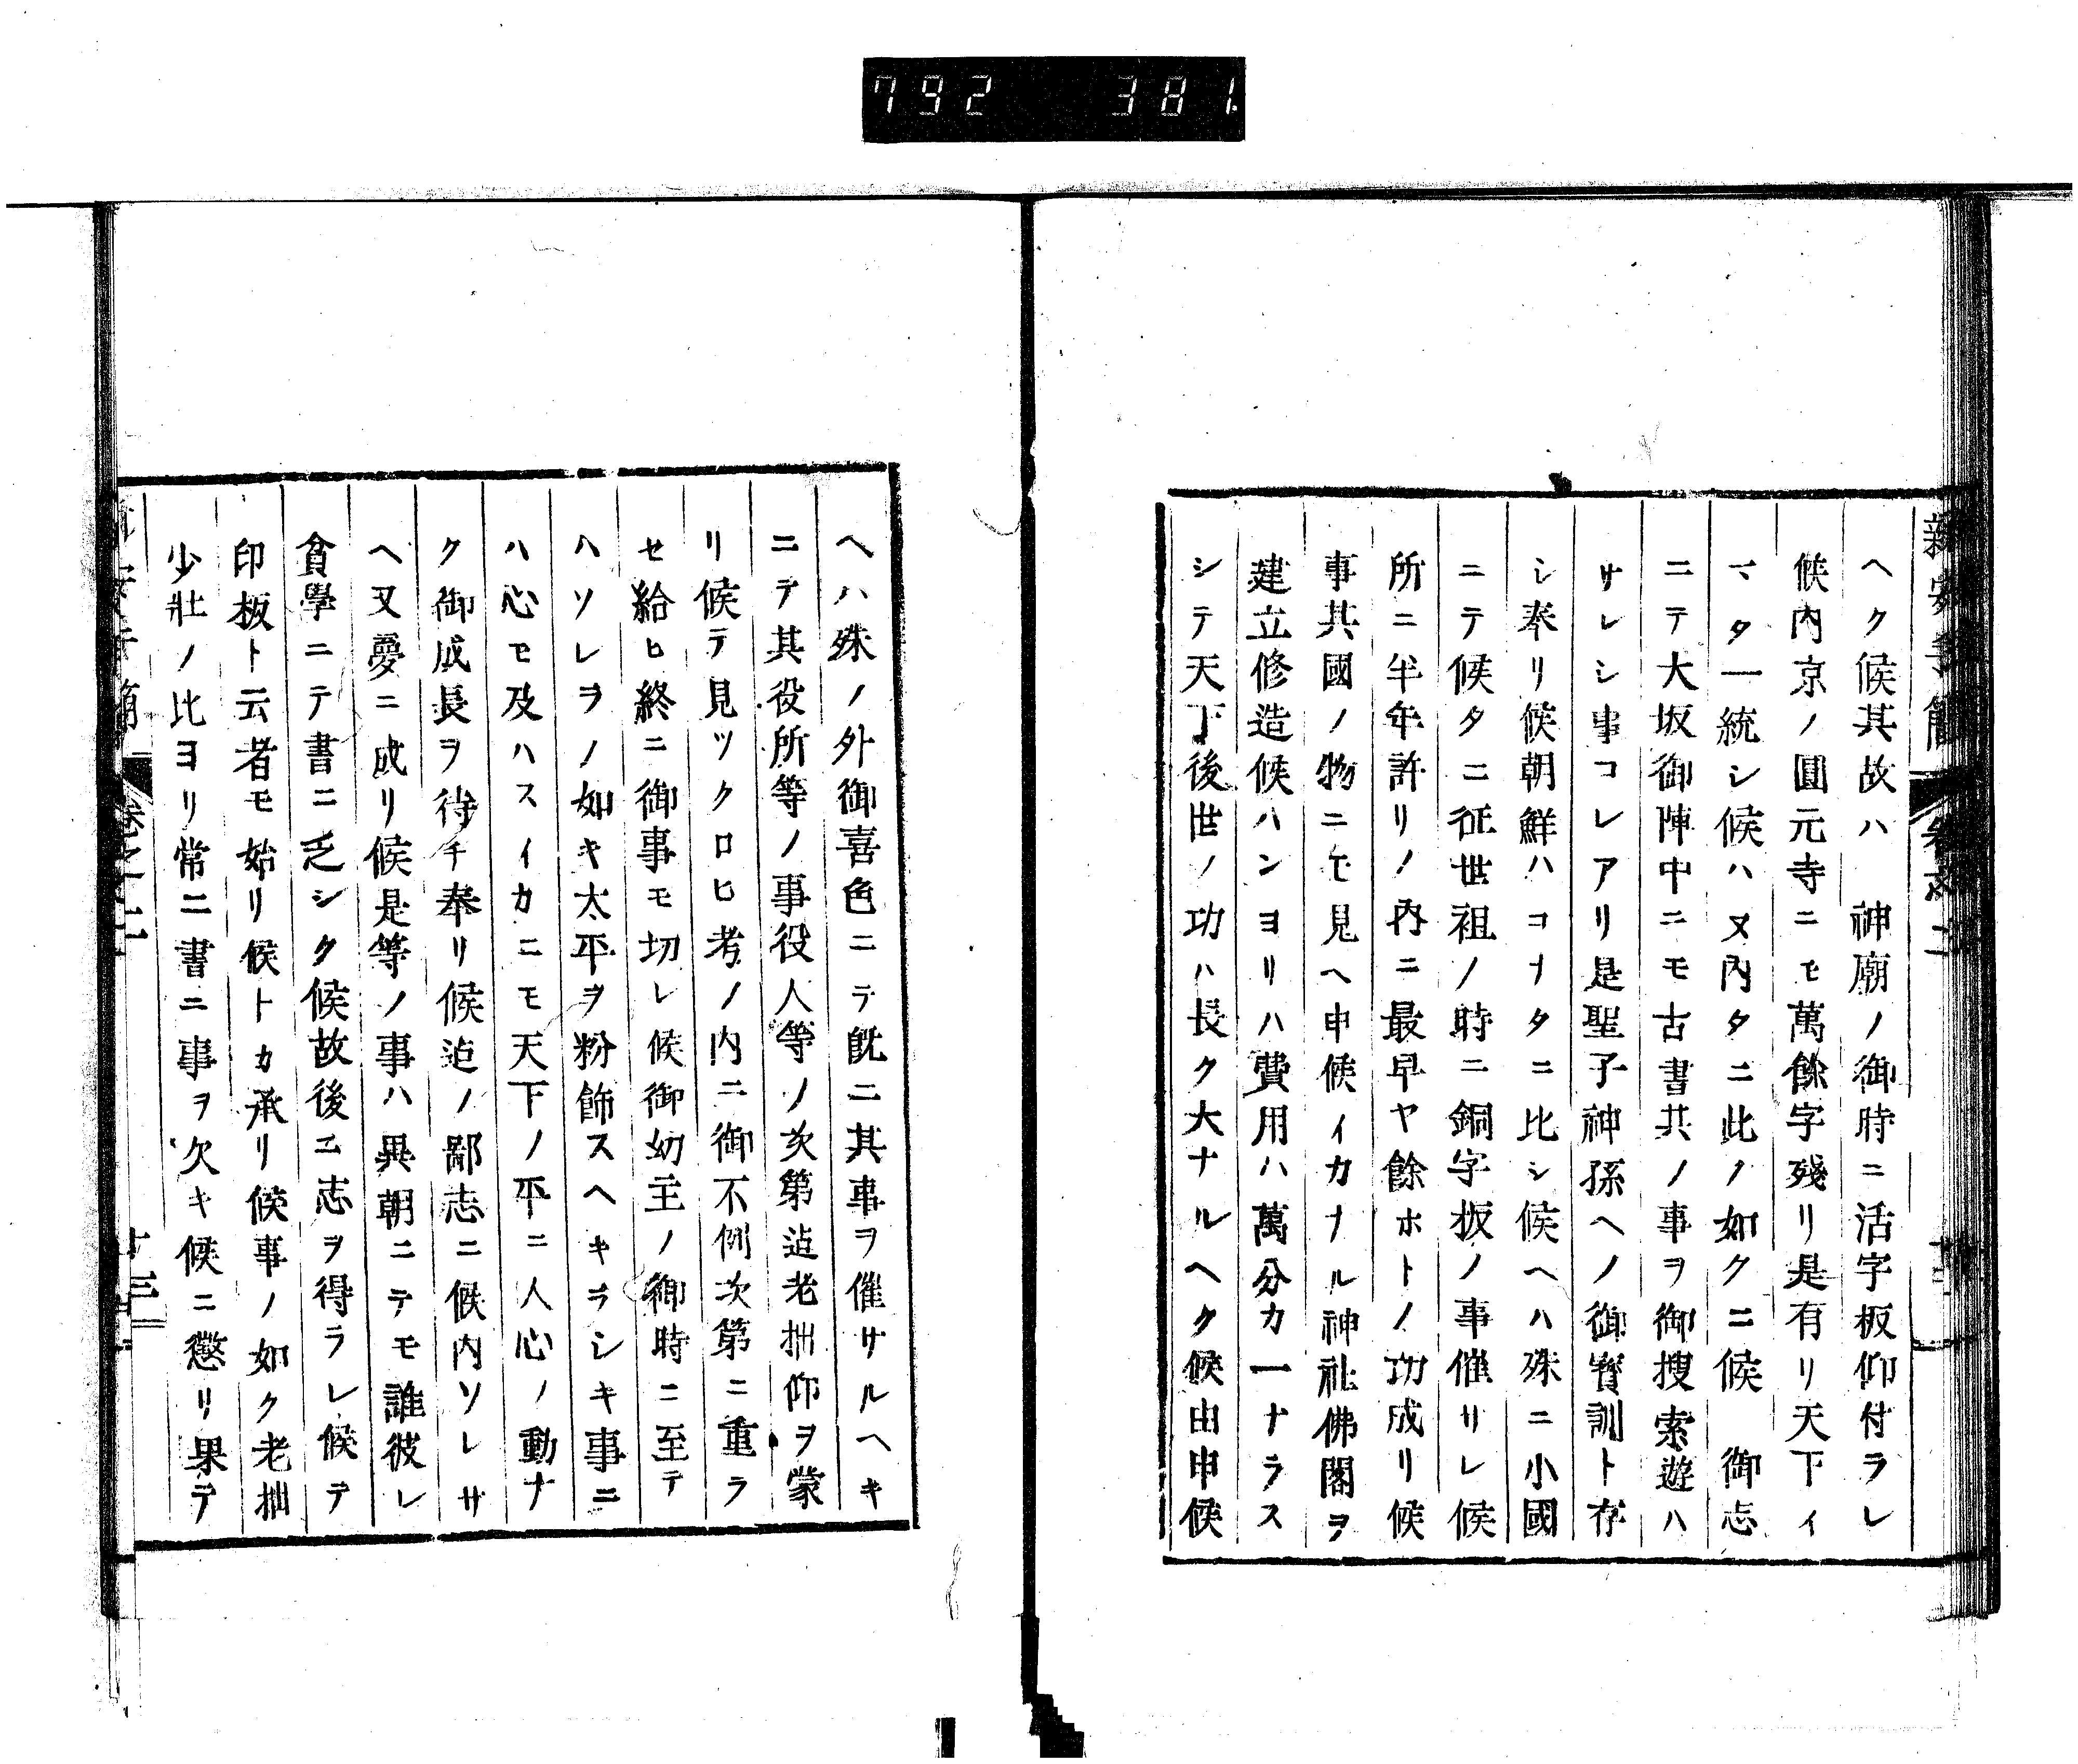 792 381
ヘク候其故ハ 神廟ノ御時ニ活字板仰付ラレ
候內京ノ圓元寺ニモ萬餘字殘リ是有リ天下イ
マタ一統シ候ハヌ內タニ此ノ如クニ候 御志
ニテ大坂御陣中ニモ古書共ノ事ヲ御搜索遊ハ
サレシ事コレアリ是聖子神孫ヘノ御寳訓ト存
シ奉リ候朝鮮ハコナタニ比シ候ヘハ殊ニ小國
ニテ候タニ征世祖ノ時ニ銅字板ノ事催サレ候
所ニ半年許リノ內ニ最早ヤ餘ホトノ功成リ候
事其國ノ物ニモ見ヘ申候イカナル神社佛閣ヲ
建立修造候ハンヨリハ費用ハ萬分カ一ナラス
シテ天下後世ノ功ハ長ク大ナルヘク候由申候
ヘハ殊ノ外御喜色ニテ旣ニ其事ヲ催サルヘキ
ニテ其役所等ノ事役人等ノ次第迠老拙仰ヲ蒙
リ候テ見ツクロヒ考ノ內ニ御不例次第ニ重ラ
セ給ヒ終ニ御事モ切レ候御幼主ノ御時ニ至テ
ハソレヲノ如キ太平ヲ粉飾スヘキラシキ事ニ
ハ心モ及ハスイカニモ天下ノ平ニ人心ノ動ナ
ク御成長ヲ待チ奉リ候迠ノ鄙志ニ候內ソレサ
ヘ又憂ニ成リ候是等ノ事ハ異朝ニテモ誰彼レ
貧學ニテ書ニ乏シク候故後ニ志ヲ得ラレ候テ
印板ト云者モ始リ候トカ承リ候事ノ如ク老拙
少壯ノ比ヨリ常ニ書ニ事ヲ欠キ候ニ懲リ果テ